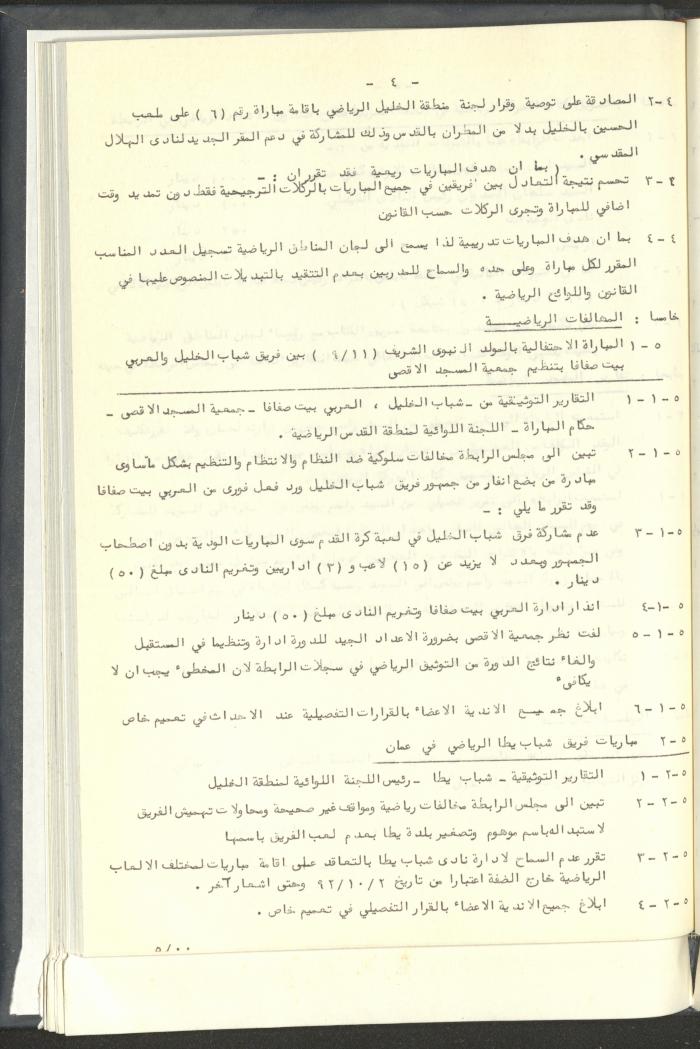 - ٤ -
٤-٢ المصادقة على توصية وقرار لجنة منطقة الخليل الرياضي باقامة مباراة رقم (٦) على ملعب
الحسين بالخليل بدلا من المطران بالقدس وذلك للمشاركة في دعم المقر الجديد لنادى الهلال
المقدسي . (بما ان هدف المباريات ريعية فقد تقرران : -
٤-٣ تحسم نتيجة التعادل بين افريقين في جميع المباريات بالركلات الترجيحية فقط دون تمديد وقت
اضافي للمباراة وتجرى الركلات حسب القانون
٤-٤ بما ان هدف المباريات تدريبية لذا يسمح الى لجان المناطق الرياضية تسجيل العدد المناسب
المقرر لكل مباراة وعلى حده والسماح للمدربين بعدم التقيد بالتبديلات المنصوص عليها في
القانون واللوائح الرياضية .
خامسا : المخالفات الرياضيـــة
٥-١ المباراة الاحتفالية بالمولد النبوى الشريف (٩/١١) بين فريق شباب الخليل والعربي
بيت صفافا بتنظيم جمعية المسجد الاقصى
٥-١-١ التقارير التوثيقية من -شباب الخليل ، العربي بيت صفافا -جمعية المسجد الاقصى -
حكام المباراة - اللجنة اللوائية لمنطقة القدس الرياضية .
٥-١-٢ تبين الى مجلس الرابطة مخالفات سلوكية ضد النظام والانتظام والتنظيم بشكل مأساوى
مبادرة من بضع انفار من جمهور فريق شباب الخليل ورد فعل فورى من العربي بيت صفافا
وقد تقرر ما يلي : -
٥-١-٣ عدم مشاركة فرق شباب الخليل في لعبة كرة القدم سوى المباريات الودية بدون اصطحاب
الجمهور وبعدد لا يزيد عن (١٥) لاعب و (٣) اداريين وتغريم النادى مبلغ (٥٠)
دينار .
٥-١-٤ انذار ادارة العربي بيت صفافا وتغريم النادى مبلغ (٥٠) دينار
٥-١-٥ لفت نظر جمعية الاقصى بضرورة الاعداد الجيد للدورة ادارة وتنظيما في المستقبل
والغاء نتائج الدورة من التوثيق الرياضي في سجلات الرابطة لان المخطىء يجب ان لا
يكافىء
٥-١-٦ ابلاغ جميـــع الاندية الاعضاء بالقرارات التفصيلية عند الاحداث في تعميم خاص
٥-٢ مباريات فريق شباب يطا الرياضي في عمان
٥-٢-١ التقارير التوثيقية - شباب يطا -رئيس اللجنة اللوائية لمنطقة الخليل
٥-٢-٢ تبين الى مجلس الرابطة مخالفات رياضية ومواقف غير صحيحة ومحاولات تهميش الفريق
لاستبداله باسم موهوم وتصغير بلدة يطا بعدم لعب الفريق باسمها
٥-٢-٣ تقرر عدم السماح لادارة نادى شباب يطا بالتعاقد على اقامة مباريات لمختلف الالعاب
الرياضية خارج الضفة اعتبارا من تاريخ ٩٢/١٠/٢ وحتى اشعار آخر .
٥-٢-٤ ابلاغ جميع الاندية الاعضاء بالقرار التفصيلي في تعميم خاص .
٥/٠٠